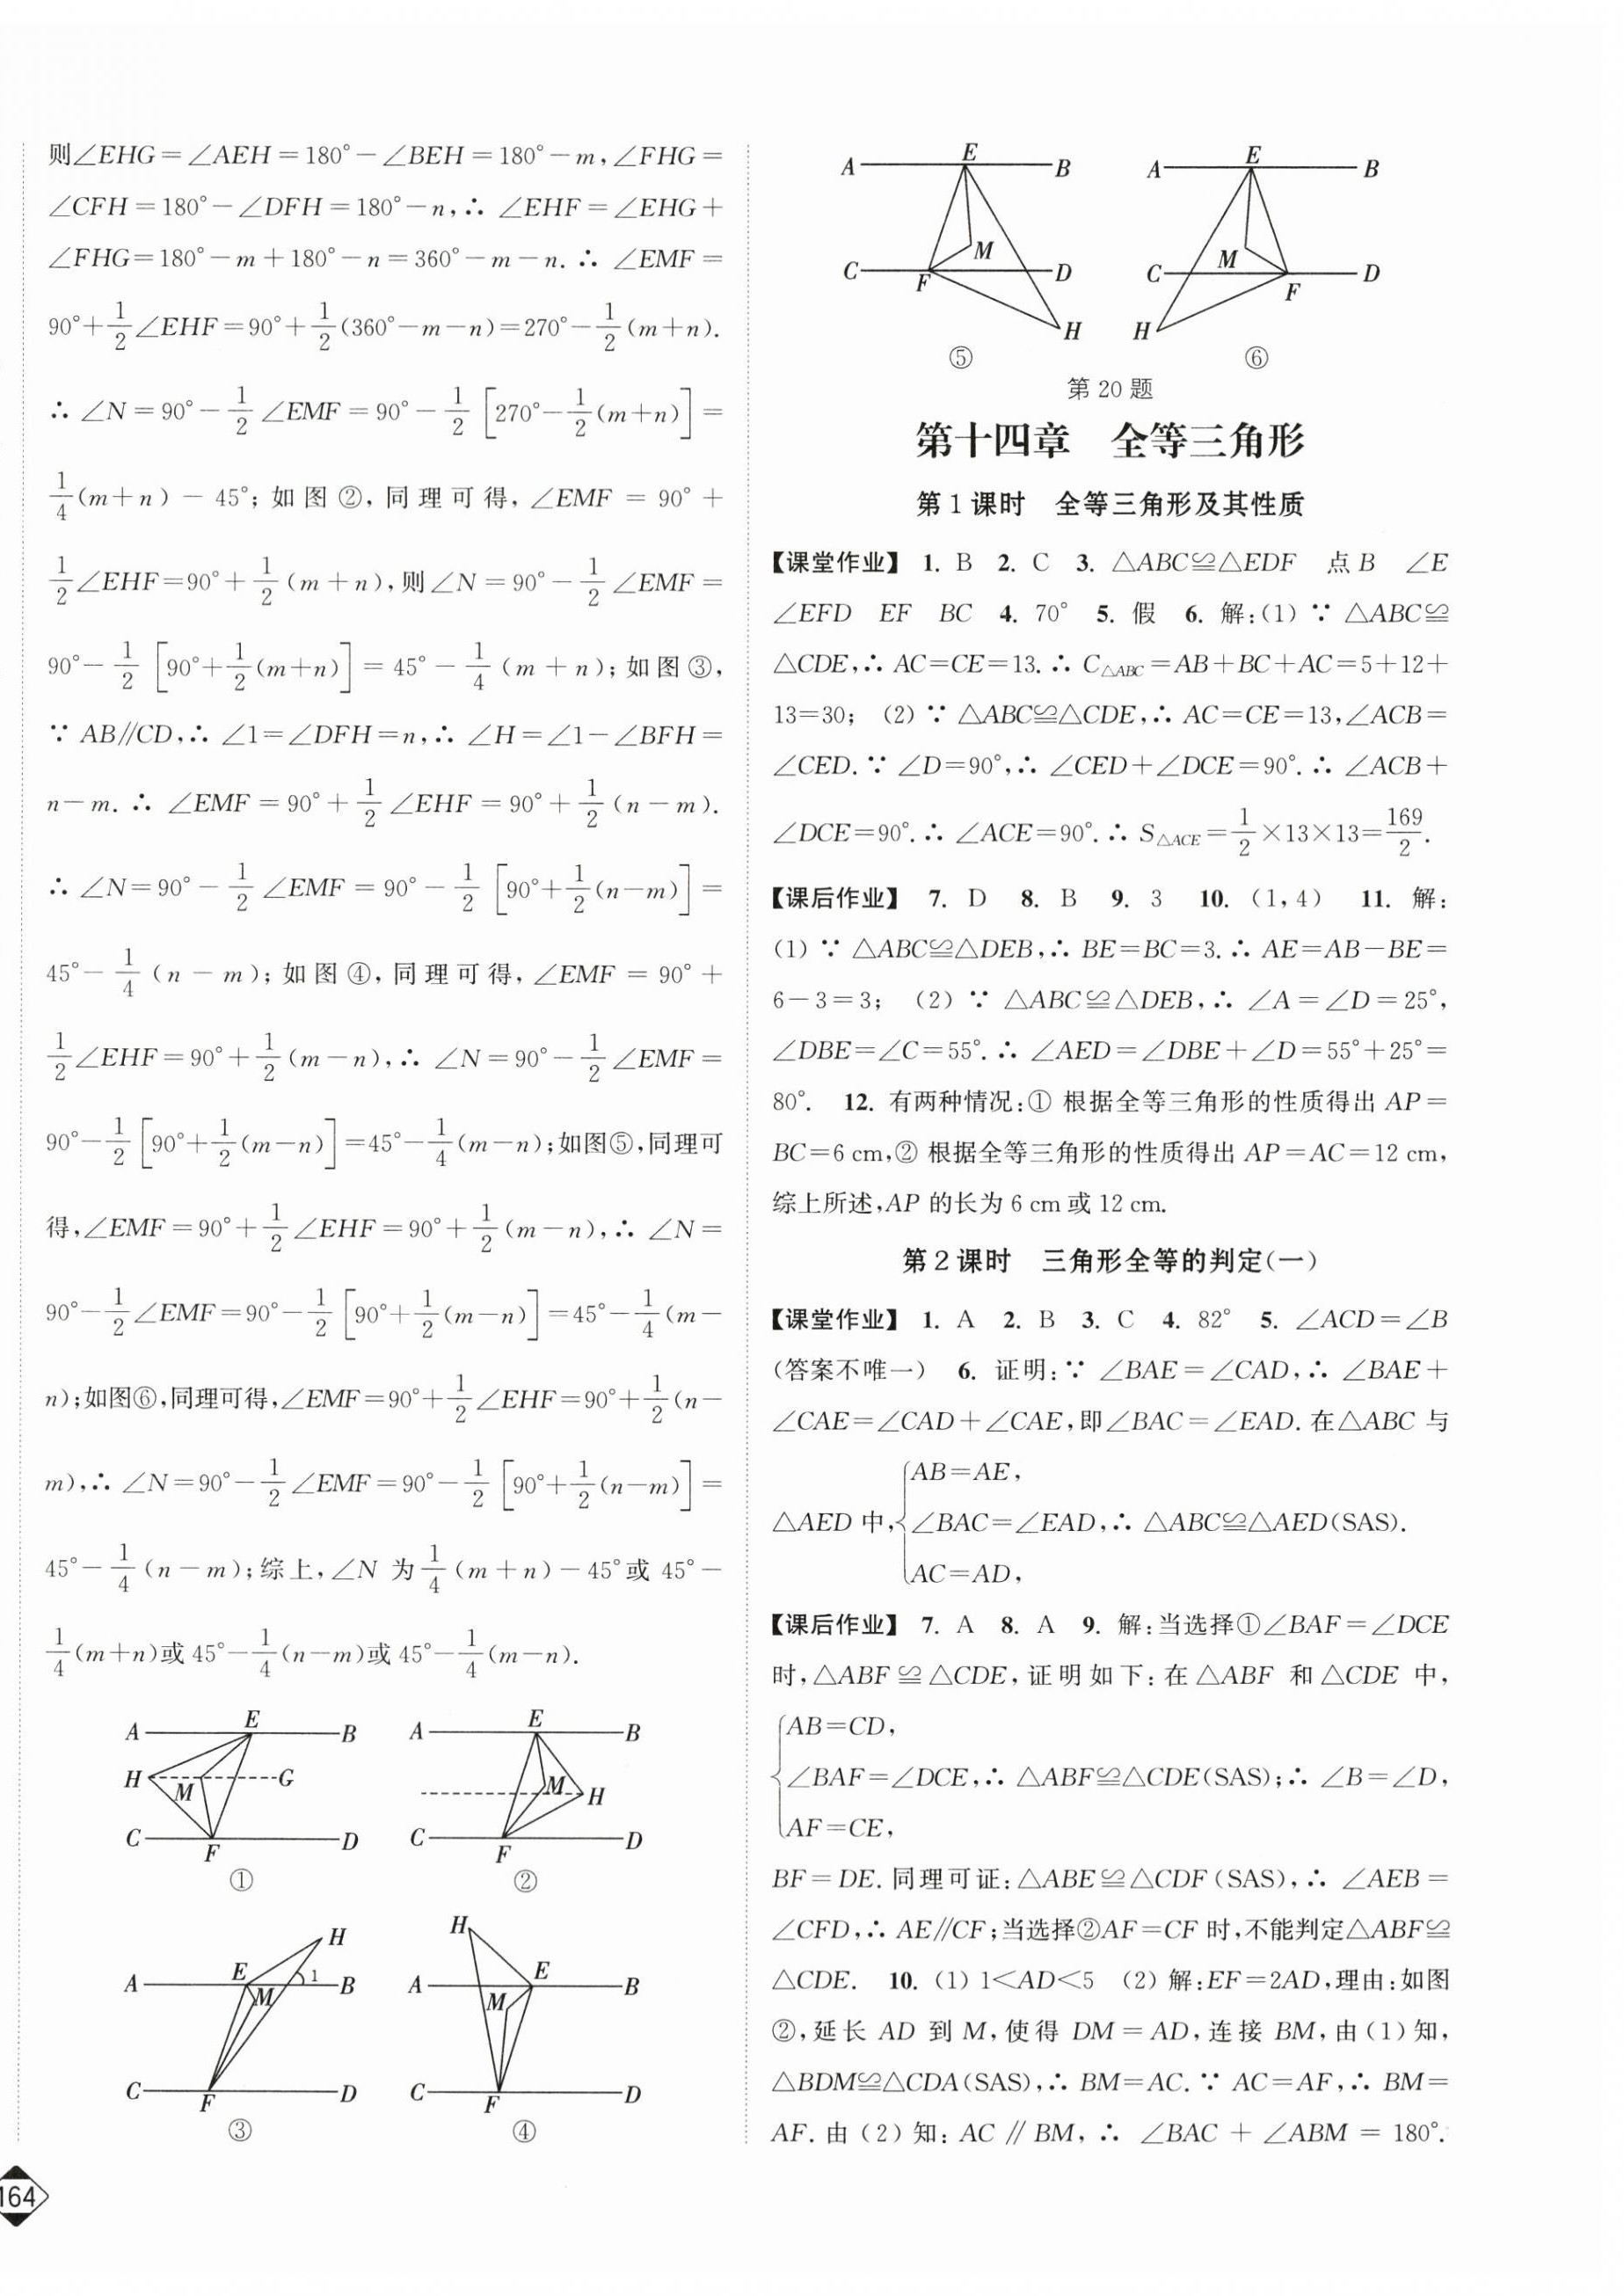 则∠EHG=∠AEH=180°-∠BEH=180°-m,∠FHG=
∠CFH=180°-∠DFH=180°-n,∴ ∠EHF=∠EHG+
∠FHG=180°-m+180°-n=360°-m-n. ∴ ∠EMF=
90°+1/2∠EHF=90°+1/2(360°-m-n)=270°-1/2(m+n).
∴ ∠N=90°-1/2∠EMF=90°-1/2[270°-1/2(m+n)]=
1/4(m+n)-45°;如图②,同理可得,∠EMF=90°+
1/2∠EHF=90°+1/2(m+n),则∠N=90°-1/2∠EMF=
90°-1/2[90°+1/2(m+n)]=45°-1/4(m+n);如图③,
∵ AB∥CD,∴ ∠1=∠DFH=n,∴ ∠H=∠1-∠BFH=
n-m. ∴ ∠EMF=90°+1/2∠EHF=90°+1/2(n-m).
∴ ∠N=90°-1/2∠EMF=90°-1/2[90°+1/2(n-m)]=
45°-1/4(n-m);如图④,同理可得,∠EMF=90°+
1/2∠EHF=90°+1/2(m-n),∴ ∠N=90°-1/2∠EMF=
90°-1/2[90°+1/2(m-n)]=45°-1/4(m-n);如图⑤,同理可
得,∠EMF=90°+1/2∠EHF=90°+1/2(m-n),∴ ∠N=
90°-1/2∠EMF=90°-1/2[90°+1/2(m-n)]=45°-1/4(m-
n);如图⑥,同理可得,∠EMF=90°+1/2∠EHF=90°+1/2(n-
m),∴ ∠N=90°-1/2∠EMF=90°-1/2[90°+1/2(n-m)]=
45°-1/4(n-m);综上,∠N 为1/4(m+n)-45°或 45°-
1/4(m+n)或 45°-1/4(n-m)或 45°-1/4(m-n).
A E B
H M G
C F D
①
A E B
M H
C F D
②
H
A E 1 B
M
C F D
③
H
A E B
M
C F D
④
164
A E B
M
C F D
H
⑤
A E B
M
C F D
H
⑥
第20题
第十四章 全等三角形
第1课时 全等三角形及其性质
【课堂作业】 1. B 2. C 3. △ABC≌△EDF 点B ∠E
∠EFD EF BC 4. 70° 5. 假 6. 解:(1) ∵ △ABC≌
△CDE,∴ AC=CE=13. ∴ C△ABC=AB+BC+AC=5+12+
13=30; (2) ∵ △ABC≌△CDE,∴ AC=CE=13,∠ACB=
∠CED. ∵ ∠D=90°,∴ ∠CED+∠DCE=90°. ∴ ∠ACB+
∠DCE=90°. ∴ ∠ACE=90°. ∴ S△ACE=1/2×13×13=169/2.
【课后作业】 7. D 8. B 9. 3 10. (1,4) 11. 解:
(1) ∵ △ABC≌△DEB,∴ BE=BC=3. ∴ AE=AB-BE=
6-3=3; (2) ∵ △ABC≌△DEB,∴ ∠A=∠D=25°,
∠DBE=∠C=55°. ∴ ∠AED=∠DBE+∠D=55°+25°=
80°. 12. 有两种情况:① 根据全等三角形的性质得出 AP=
BC=6 cm,② 根据全等三角形的性质得出 AP=AC=12 cm,
综上所述,AP 的长为 6 cm 或 12 cm.
第2课时 三角形全等的判定(一)
【课堂作业】 1. A 2. B 3. C 4. 82° 5. ∠ACD=∠B
(答案不唯一) 6. 证明:∵ ∠BAE=∠CAD,∴ ∠BAE+
∠CAE=∠CAD+∠CAE,即∠BAC=∠EAD. 在△ABC 与
AB=AE,
△AED 中,{∠BAC=∠EAD,∴ △ABC≌△AED(SAS).
AC=AD,
【课后作业】 7. A 8. A 9. 解:当选择①∠BAF=∠DCE
时,△ABF≌△CDE,证明如下:在△ABF 和△CDE 中,
AB=CD,
{∠BAF=∠DCE,∴ △ABF≌△CDE(SAS);∴ ∠B=∠D,
AF=CE,
BF=DE. 同理可证:△ABE≌△CDF(SAS),∴ ∠AEB=
∠CFD,∴ AE∥CF;当选择②AF=CF 时,不能判定△ABF≌
△CDE. 10. (1) 1<AD<5 (2) 解:EF=2AD,理由:如图
②,延长 AD 到 M,使得 DM=AD,连接 BM,由(1)知,
△BDM≌△CDA(SAS),∴ BM=AC. ∵ AC=AF,∴ BM=
AF. 由(2)知: AC∥BM, ∴ ∠BAC+∠ABM=180°.